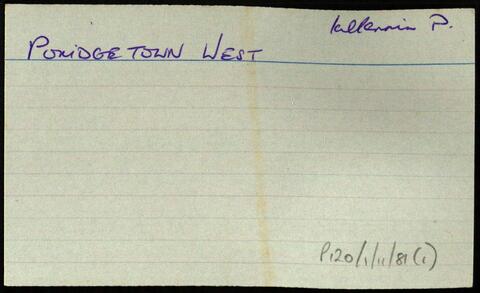 Killannin P.
PORIDGETOWN WEST
P120/1/11/81(1)